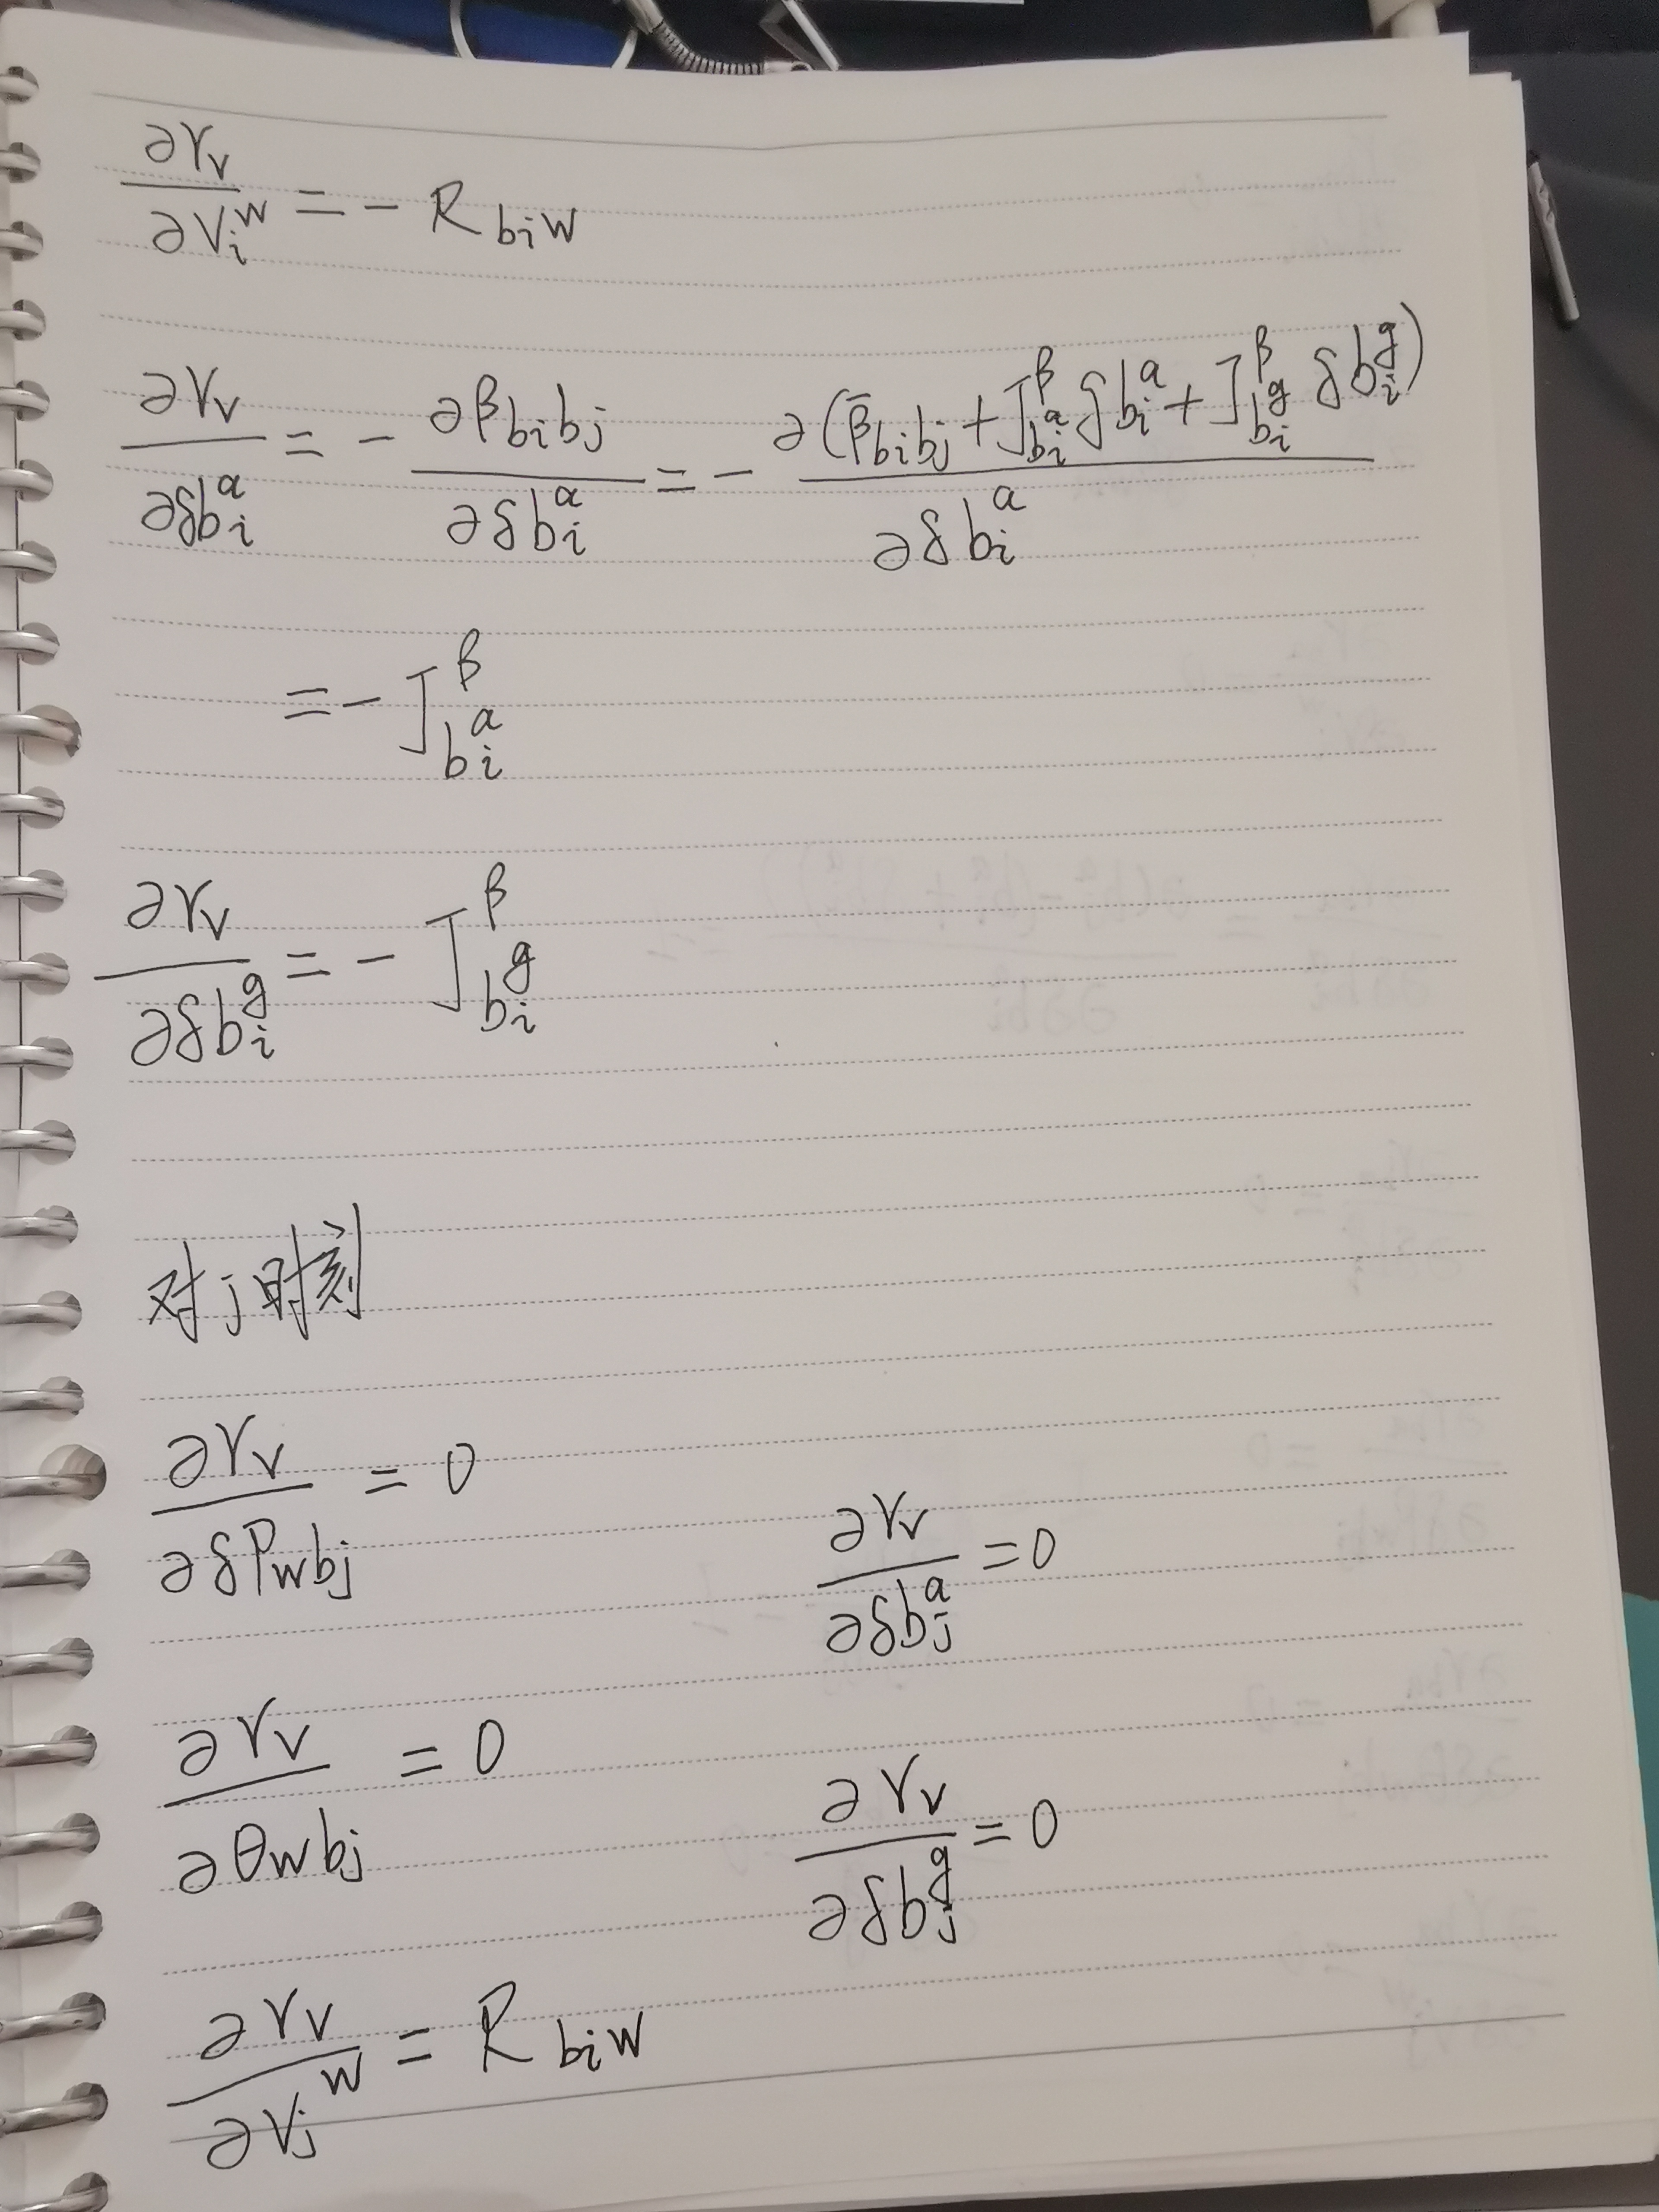 ∂r_v / ∂v_i^w = - R_{b_i w}
∂r_v / ∂δb_i^a = - ∂β_{b_i b_j} / ∂δb_i^a = - ∂(β̄_{b_i b_j} + J^β_{b_i^a} δb_i^a + J^β_{b_i^g} δb_i^g) / ∂δb_i^a
= - J^β_{b_i^a}
∂r_v / ∂δb_i^g = - J^β_{b_i^g}
对j时刻
∂r_v / ∂δP_{wb_j} = 0
∂r_v / ∂δb_j^a = 0
∂r_v / ∂θ_{wb_j} = 0
∂r_v / ∂δb_j^g = 0
∂r_v / ∂v_j^w = R_{b_i w}